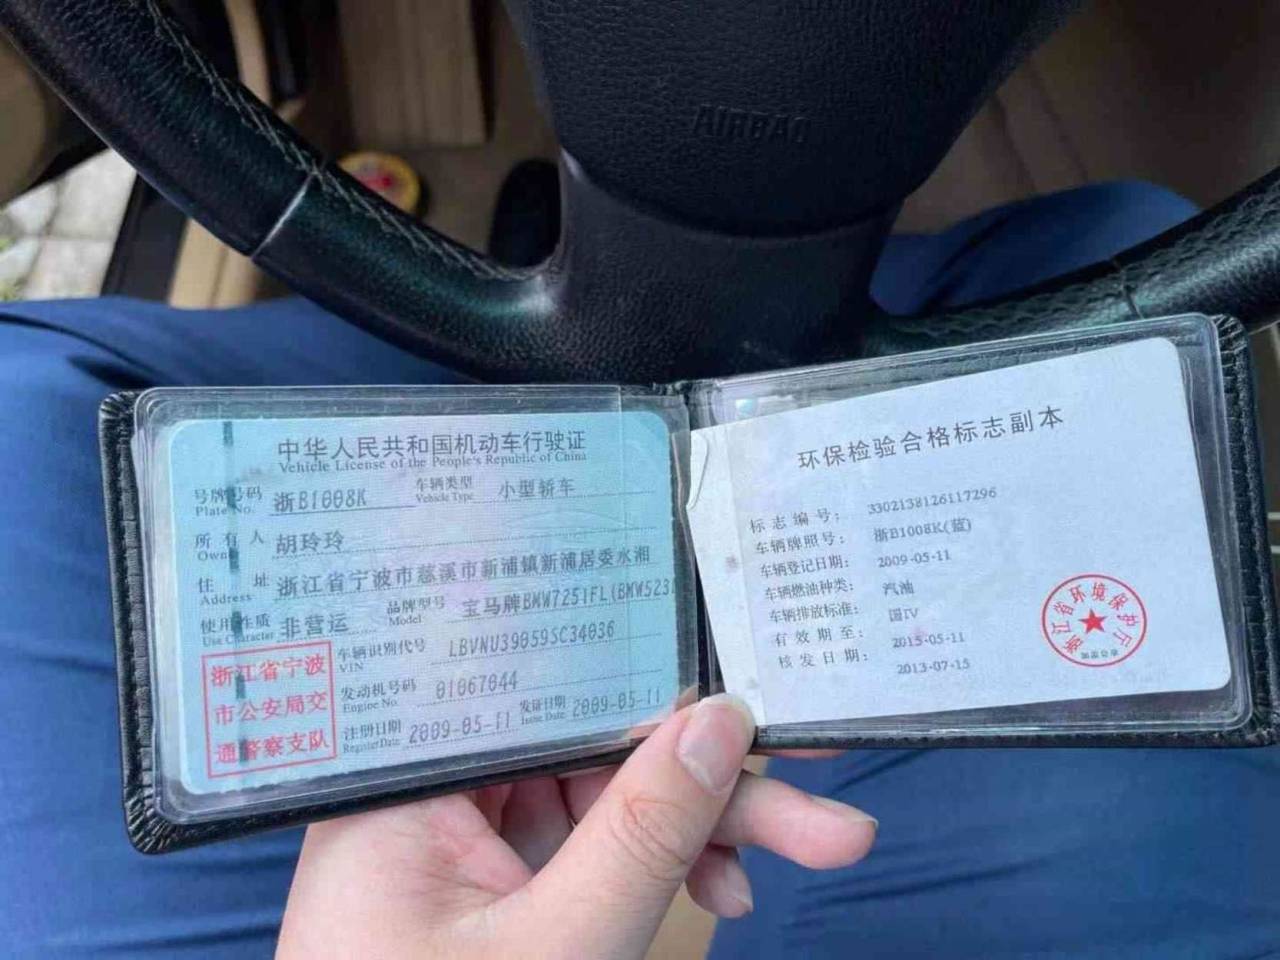 AIRBAG
中华人民共和国机动车行驶证
Vehicle License of the People's Republic of China
号牌号码 浙B1008K 车辆类型 小型轿车
Plate No. Vehicle Type
所有人 胡玲玲
Owner
住址 浙江省宁波市慈溪市新浦镇新浦居委水湘
Address
使用性质 非营运 品牌型号 宝马牌BMW7251FL(BMW523
Use Character Model
浙江省宁波
市公安局交
通警察支队
车辆识别代号 LBVNU39059SC34036
VIN
发动机号码 01067044
Engine No.
注册日期 2009-05-11 发证日期 2009-05-11
Register Date Issue Date
环保检验合格标志副本
标志编号: 3302138126117296
车辆牌照号: 浙B1008K(蓝)
车辆登记日期: 2009-05-11
车辆燃油种类: 汽油
车辆排放标准: 国IV
有效期至: 2015-05-11
核发日期: 2013-07-15
浙江省环境保护厅